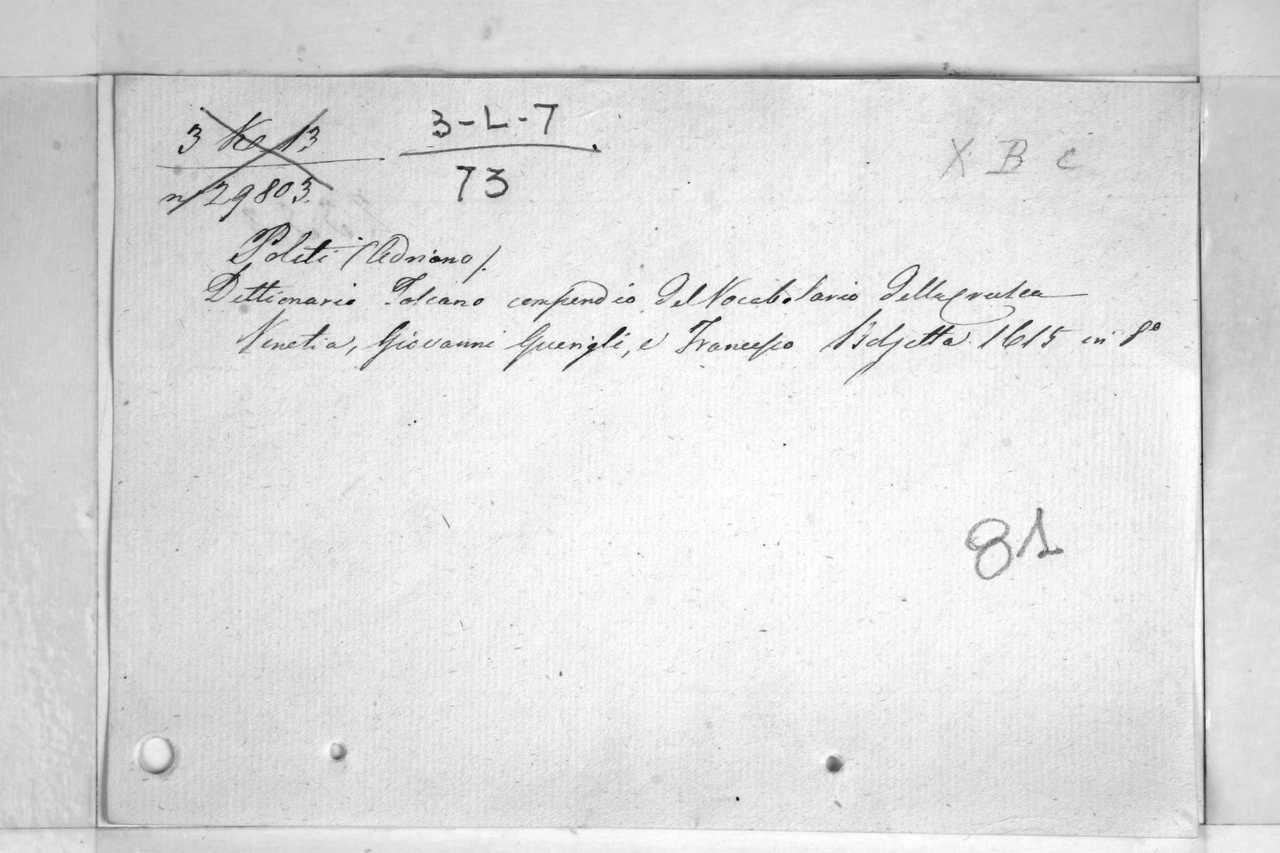 3 K 13
n 29803.
3-L-7
73
X B C
Politi (Adriano).
Dittionario Toscano compendio del Vocabolario della Crusca
Venetia, Giovanni Guerigli, e Francesco Bolzetta 1615 in 8º
81